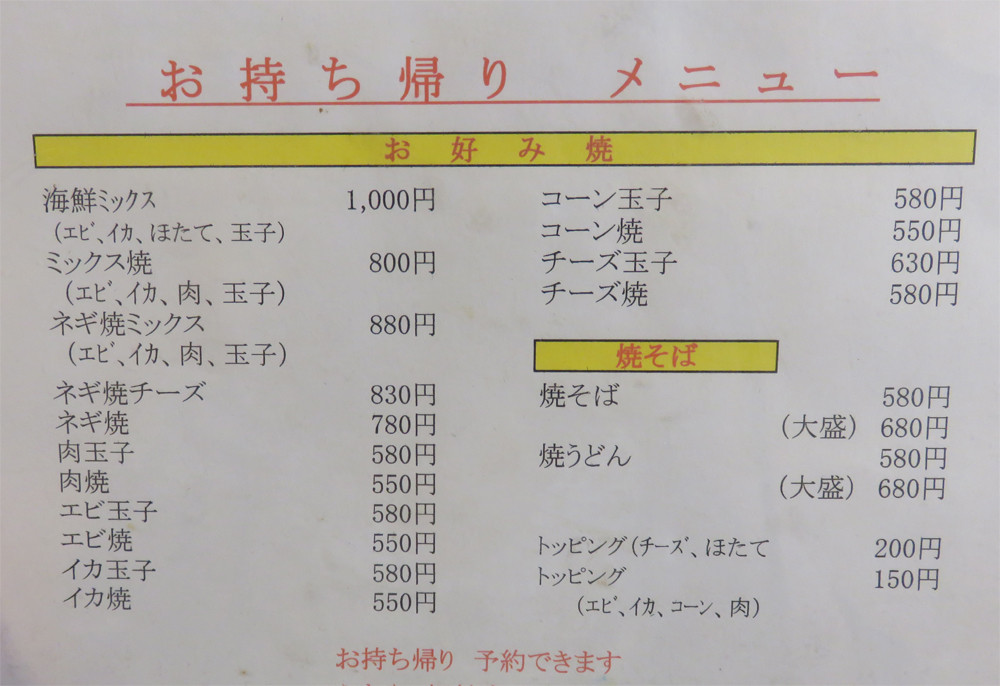 お持ち帰り メニュー
お好み焼
海鮮ミックス 1,000円
(エビ、イカ、ほたて、玉子)
ミックス焼 800円
(エビ、イカ、肉、玉子)
ネギ焼ミックス 880円
(エビ、イカ、肉、玉子)
ネギ焼チーズ 830円
ネギ焼 780円
肉玉子 580円
肉焼 550円
エビ玉子 580円
エビ焼 550円
イカ玉子 580円
イカ焼 550円
コーン玉子 580円
コーン焼 550円
チーズ玉子 630円
チーズ焼 580円
焼そば
焼そば 580円
(大盛) 680円
焼うどん 580円
(大盛) 680円
トッピング(チーズ、ほたて 200円
トッピング 150円
(エビ、イカ、コーン、肉)
お持ち帰り 予約できます